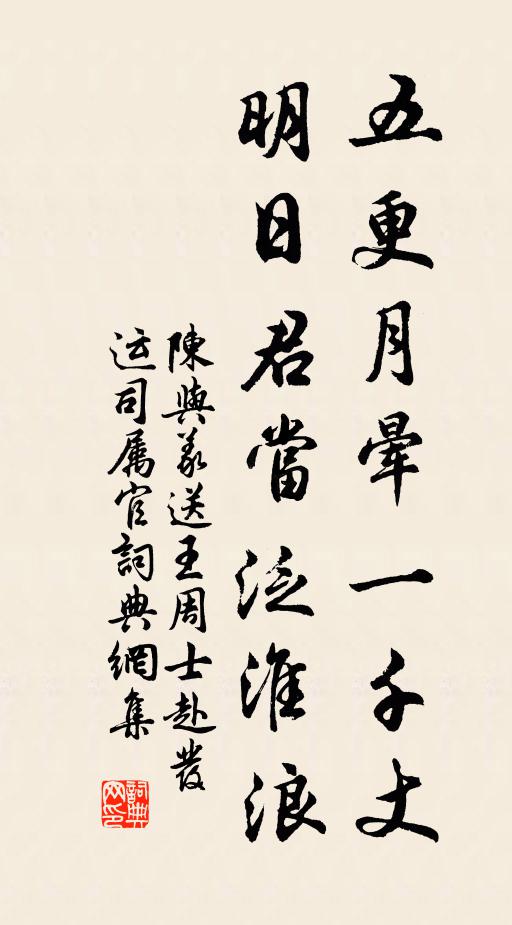 五更月暈一千丈
明日君當泛淮浪
陳與義送王周士赴發
运司属官詞典網集
詞典網印